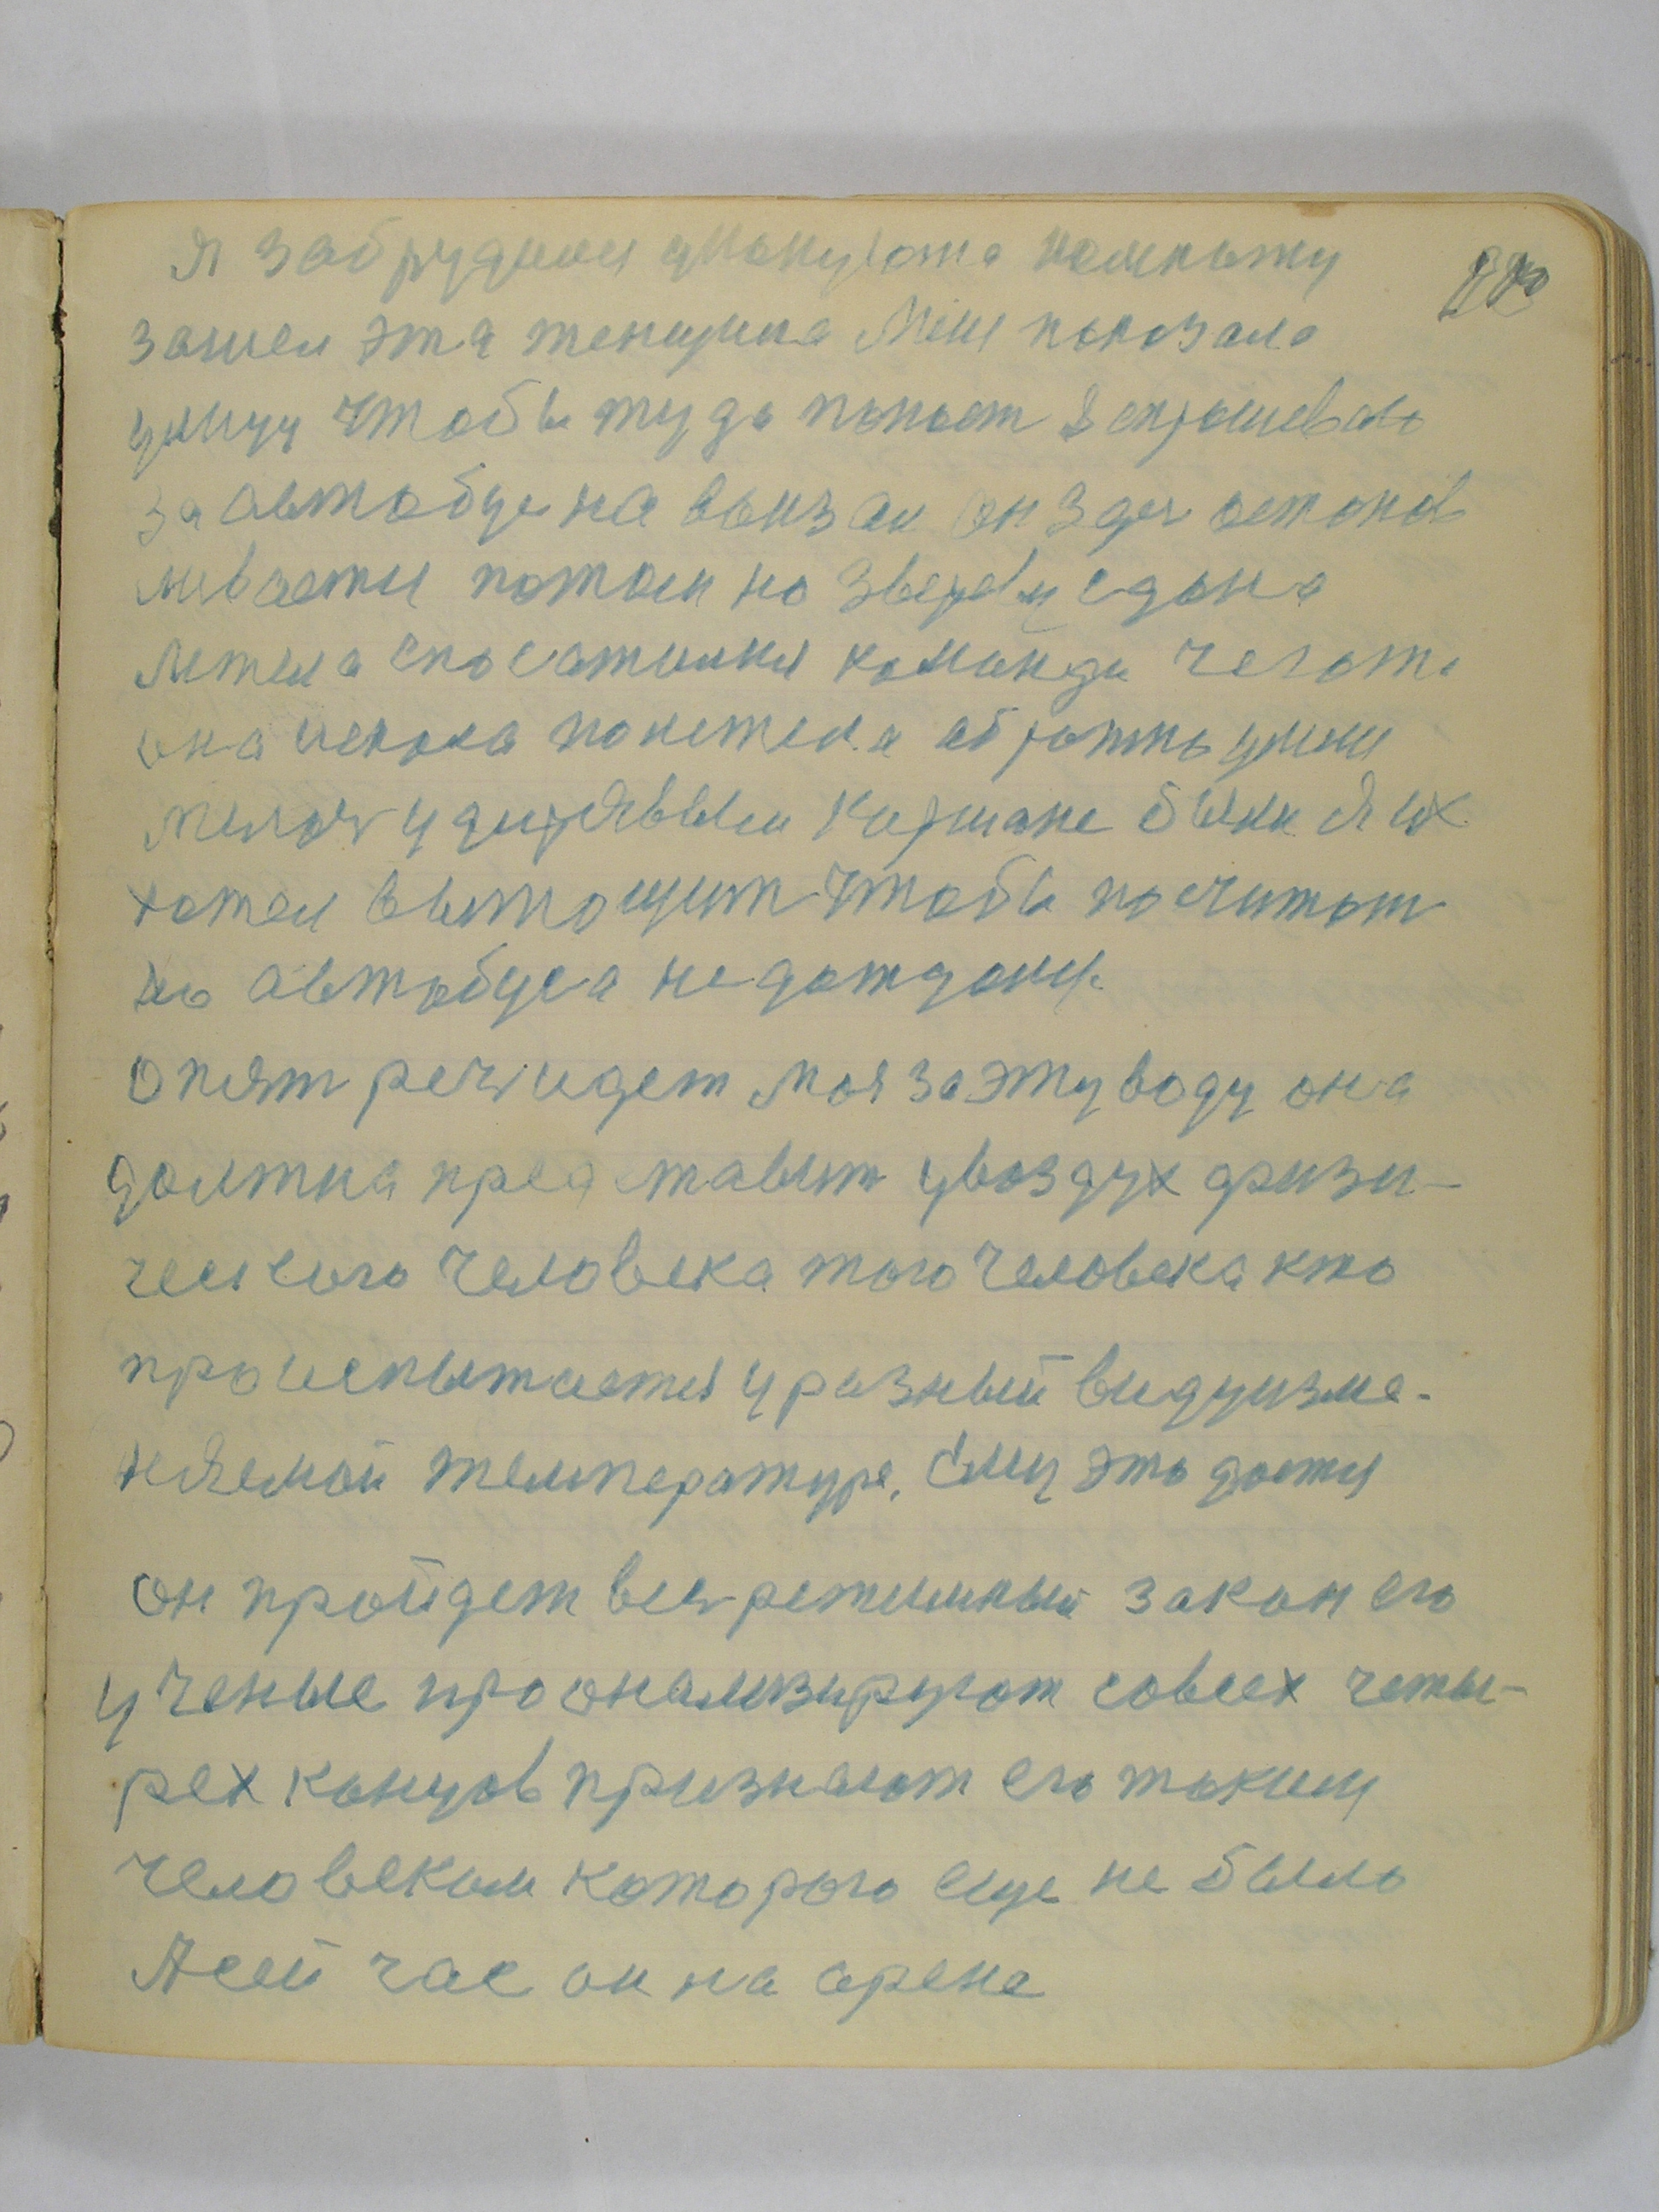 Я забрудился
зашел эта женщина Мне показала
улицу Чтобы туда попаст Я спрошевал
за автобус на вокзал он здес останов
ливается потом на Звереву сюда
Летела спасателная команди чегото
она искала полетела обратно у меня
мелоч у дирявым кармане были Я их
хотел вытощит чтобы посчитат
но автобуса не дождался
Опят реч идет моя за эту воду она
должна представит увоздух физи-
ческого человека того человека кто
произпытается у разный виду изме-
няемой температуре. Ему это дастся
он пройдет вес режимный закон его
ученые проонализируют совсех четы-
рех концов признают его таким
человеком которого еще не было
А сей час он на арене